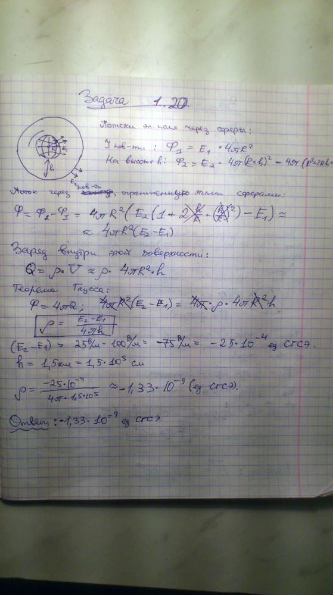 Задача 1.20
Потоки эл. поля через сферы:
У пов-ти: Φ₁ = E₁ · 4πR²
На высоте h: Φ₂ = E₂ · 4π(R+h)² =
h
Поток через ограниченную этими сферами:
Φ = Φ₂ - Φ₁ = 4πR²(E₂(1 + 2h/R + (h/R)²) - E₁) ≈
≈ 4πR²(E₂ - E₁)
Заряд внутри этой поверхности:
Q = ρ · V ≈ ρ · 4πR² · h
Теорема Гаусса:
Φ = 4πQ, 4πR²(E₂ - E₁) = 4π · ρ · 4πR² h
ρ = (E₂ - E₁)/(4πh)
(E₂ - E₁) = 25 В/м - 100 В/м = -75 В/м = -25 · 10⁻⁴ ед. СГСЭ.
h = 1,5км = 1,5 · 10⁵ см
ρ = (-25 · 10⁻⁴)/(4π · 1,5 · 10⁵) ≈ -1,33 · 10⁻⁹ (ед. СГСЭ).
Ответ: -1,33 · 10⁻⁹ ед СГСЭ